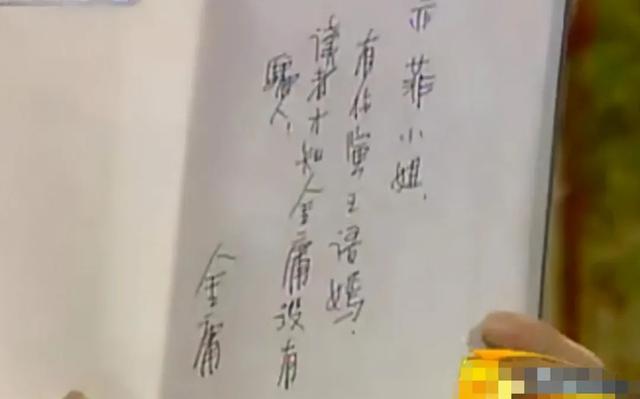 亦菲小姐,
有你演王语嫣,
读者才知金庸没有
骗人,
金庸